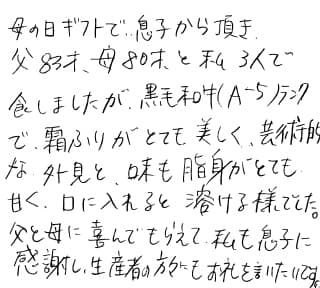 母の日ギフトで、息子から頂き、
父83才、母80才と私3人で
食しましたが、黒毛和牛(A-5)ランク
で、霜ふりがとても美しく、芸術的
な外見と、味も脂身がとても
甘く、口に入れると溶ける様でした。
父と母に喜んでもらえて、私も息子に
感謝し、生産者の方にもお礼を言いたいです。